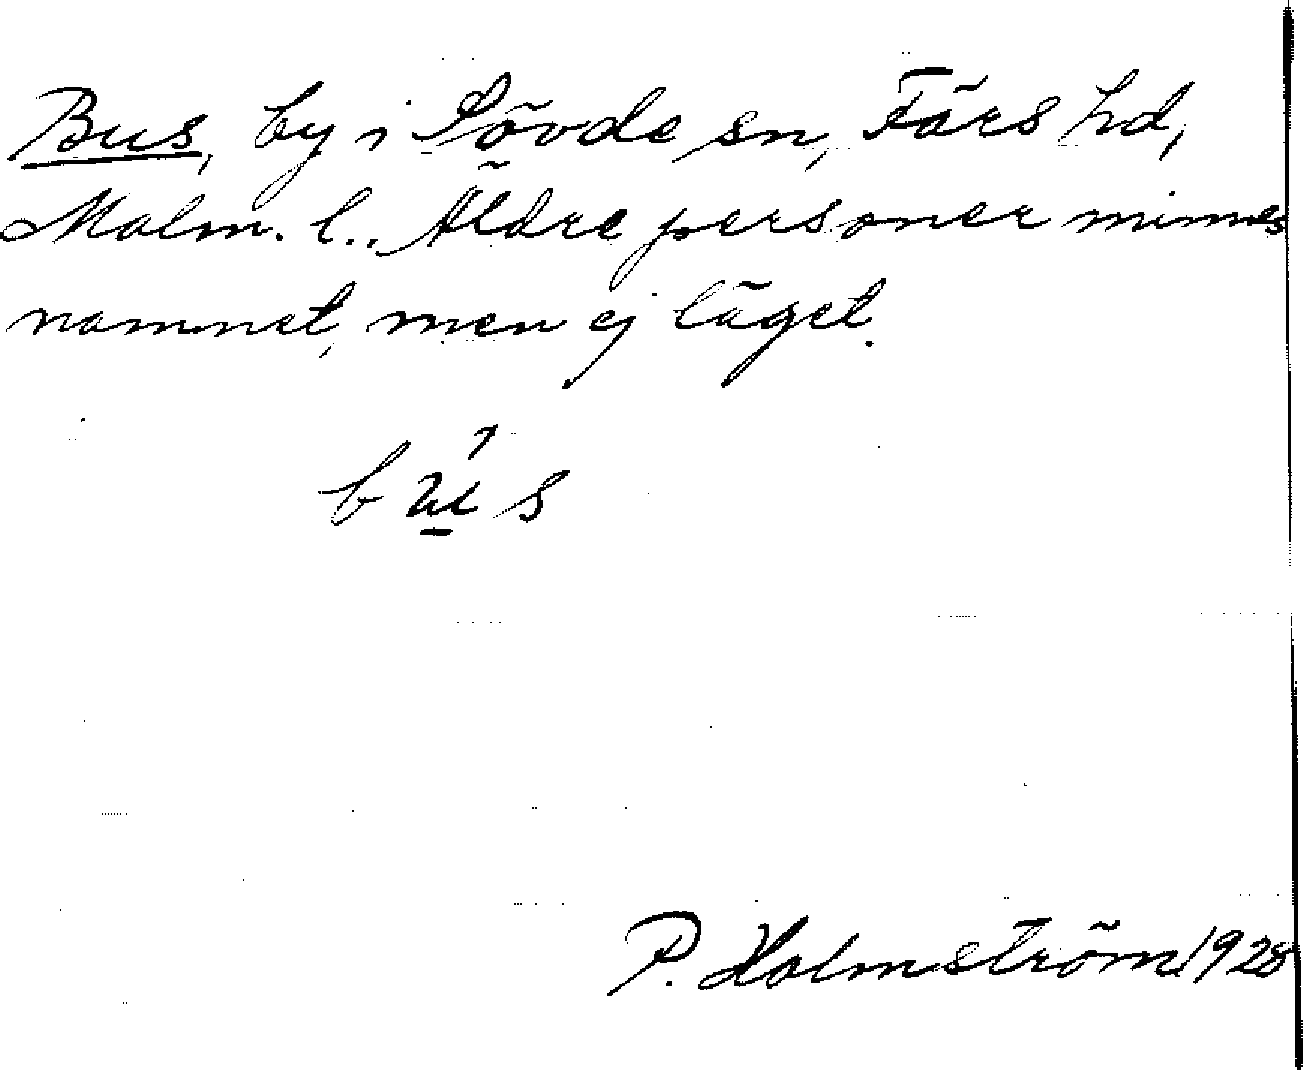 Bus, by i Sövde sn, Färs hd,
Malm. l.. Äldre personer minnes
namnet, men ej läget.
bu̲´s
P. Holmström 1928